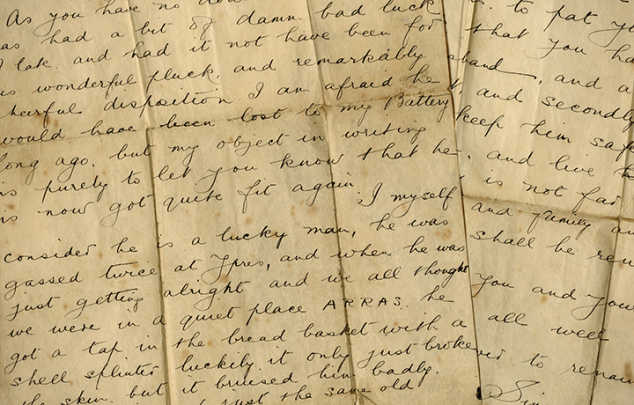 As you have no
has had a bit of damn bad luck
late and had it not have been for
his wonderful pluck, and remarkably
cheerful disposition I am afraid he
would have been lost to my Battery
long ago. but my object in writing
is purely to let you know that he
is now got quite fit again. I myself
consider he is a lucky man, he was
gassed twice at Ypres, and when he was
just getting alright and we all thought
we were in a quiet place ARRAS. he
got a tap in the bread basket with a
shell splinter luckily it only just broke
the skin. but it bruised him badly.
just the same old
to pat
that you ha
band, and a
and secondly
keep him safe
and live
is not far
and family an
shall be ren
you and you
all well
to remain
Sin